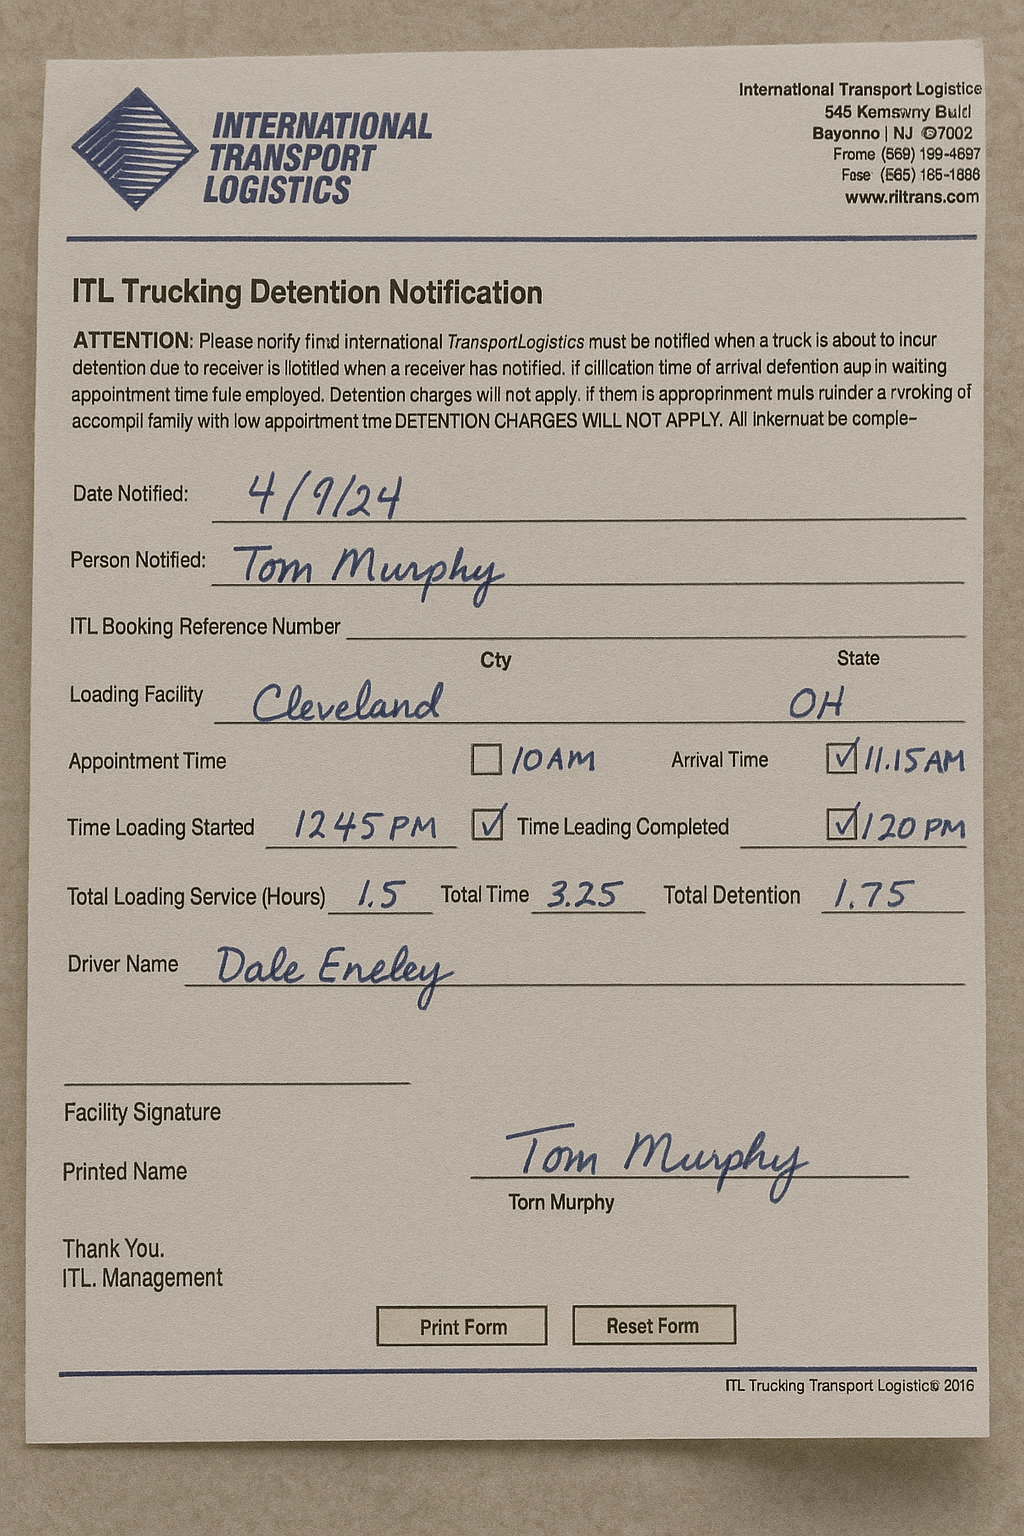 INTERNATIONAL
TRANSPORT
LOGISTICS
International Transport Logistice
545 Kemswny Buld
Bayonno | NJ 07002
Frome (569) 199-4697
Fose (565) 165-1886
www.riltrans.com
ITL Trucking Detention Notification
ATTENTION: Please norify find international TransportLogistics must be notified when a truck is about to incur
detention due to receiver is llotitled when a receiver has notified. if cilllcation time of arrival defention aup in waiting
appointment time fule employed. Detention charges will not apply. if them is approprinment muls ruinder a rvroking of
accompil family with low appoirtment tme DETENTION CHARGES WILL NOT APPLY. All Inkernuat be comple–
Date Notified: 4/9/24
Person Notified: Tom Murphy
ITL Booking Reference Number
Cty State
Loading Facility Cleveland OH
Appointment Time 10 AM Arrival Time ✓ 11.15 AM
Time Loading Started 1245 PM ✓ Time Leading Completed ✓ 120 PM
Total Loading Service (Hours) 1.5 Total Time 3.25 Total Detention 1.75
Driver Name Dale Eneley
Facility Signature
Printed Name Tom Murphy
Torn Murphy
Thank You.
ITL. Management
Print Form Reset Form
ITL Trucking Transport Logistic© 2016